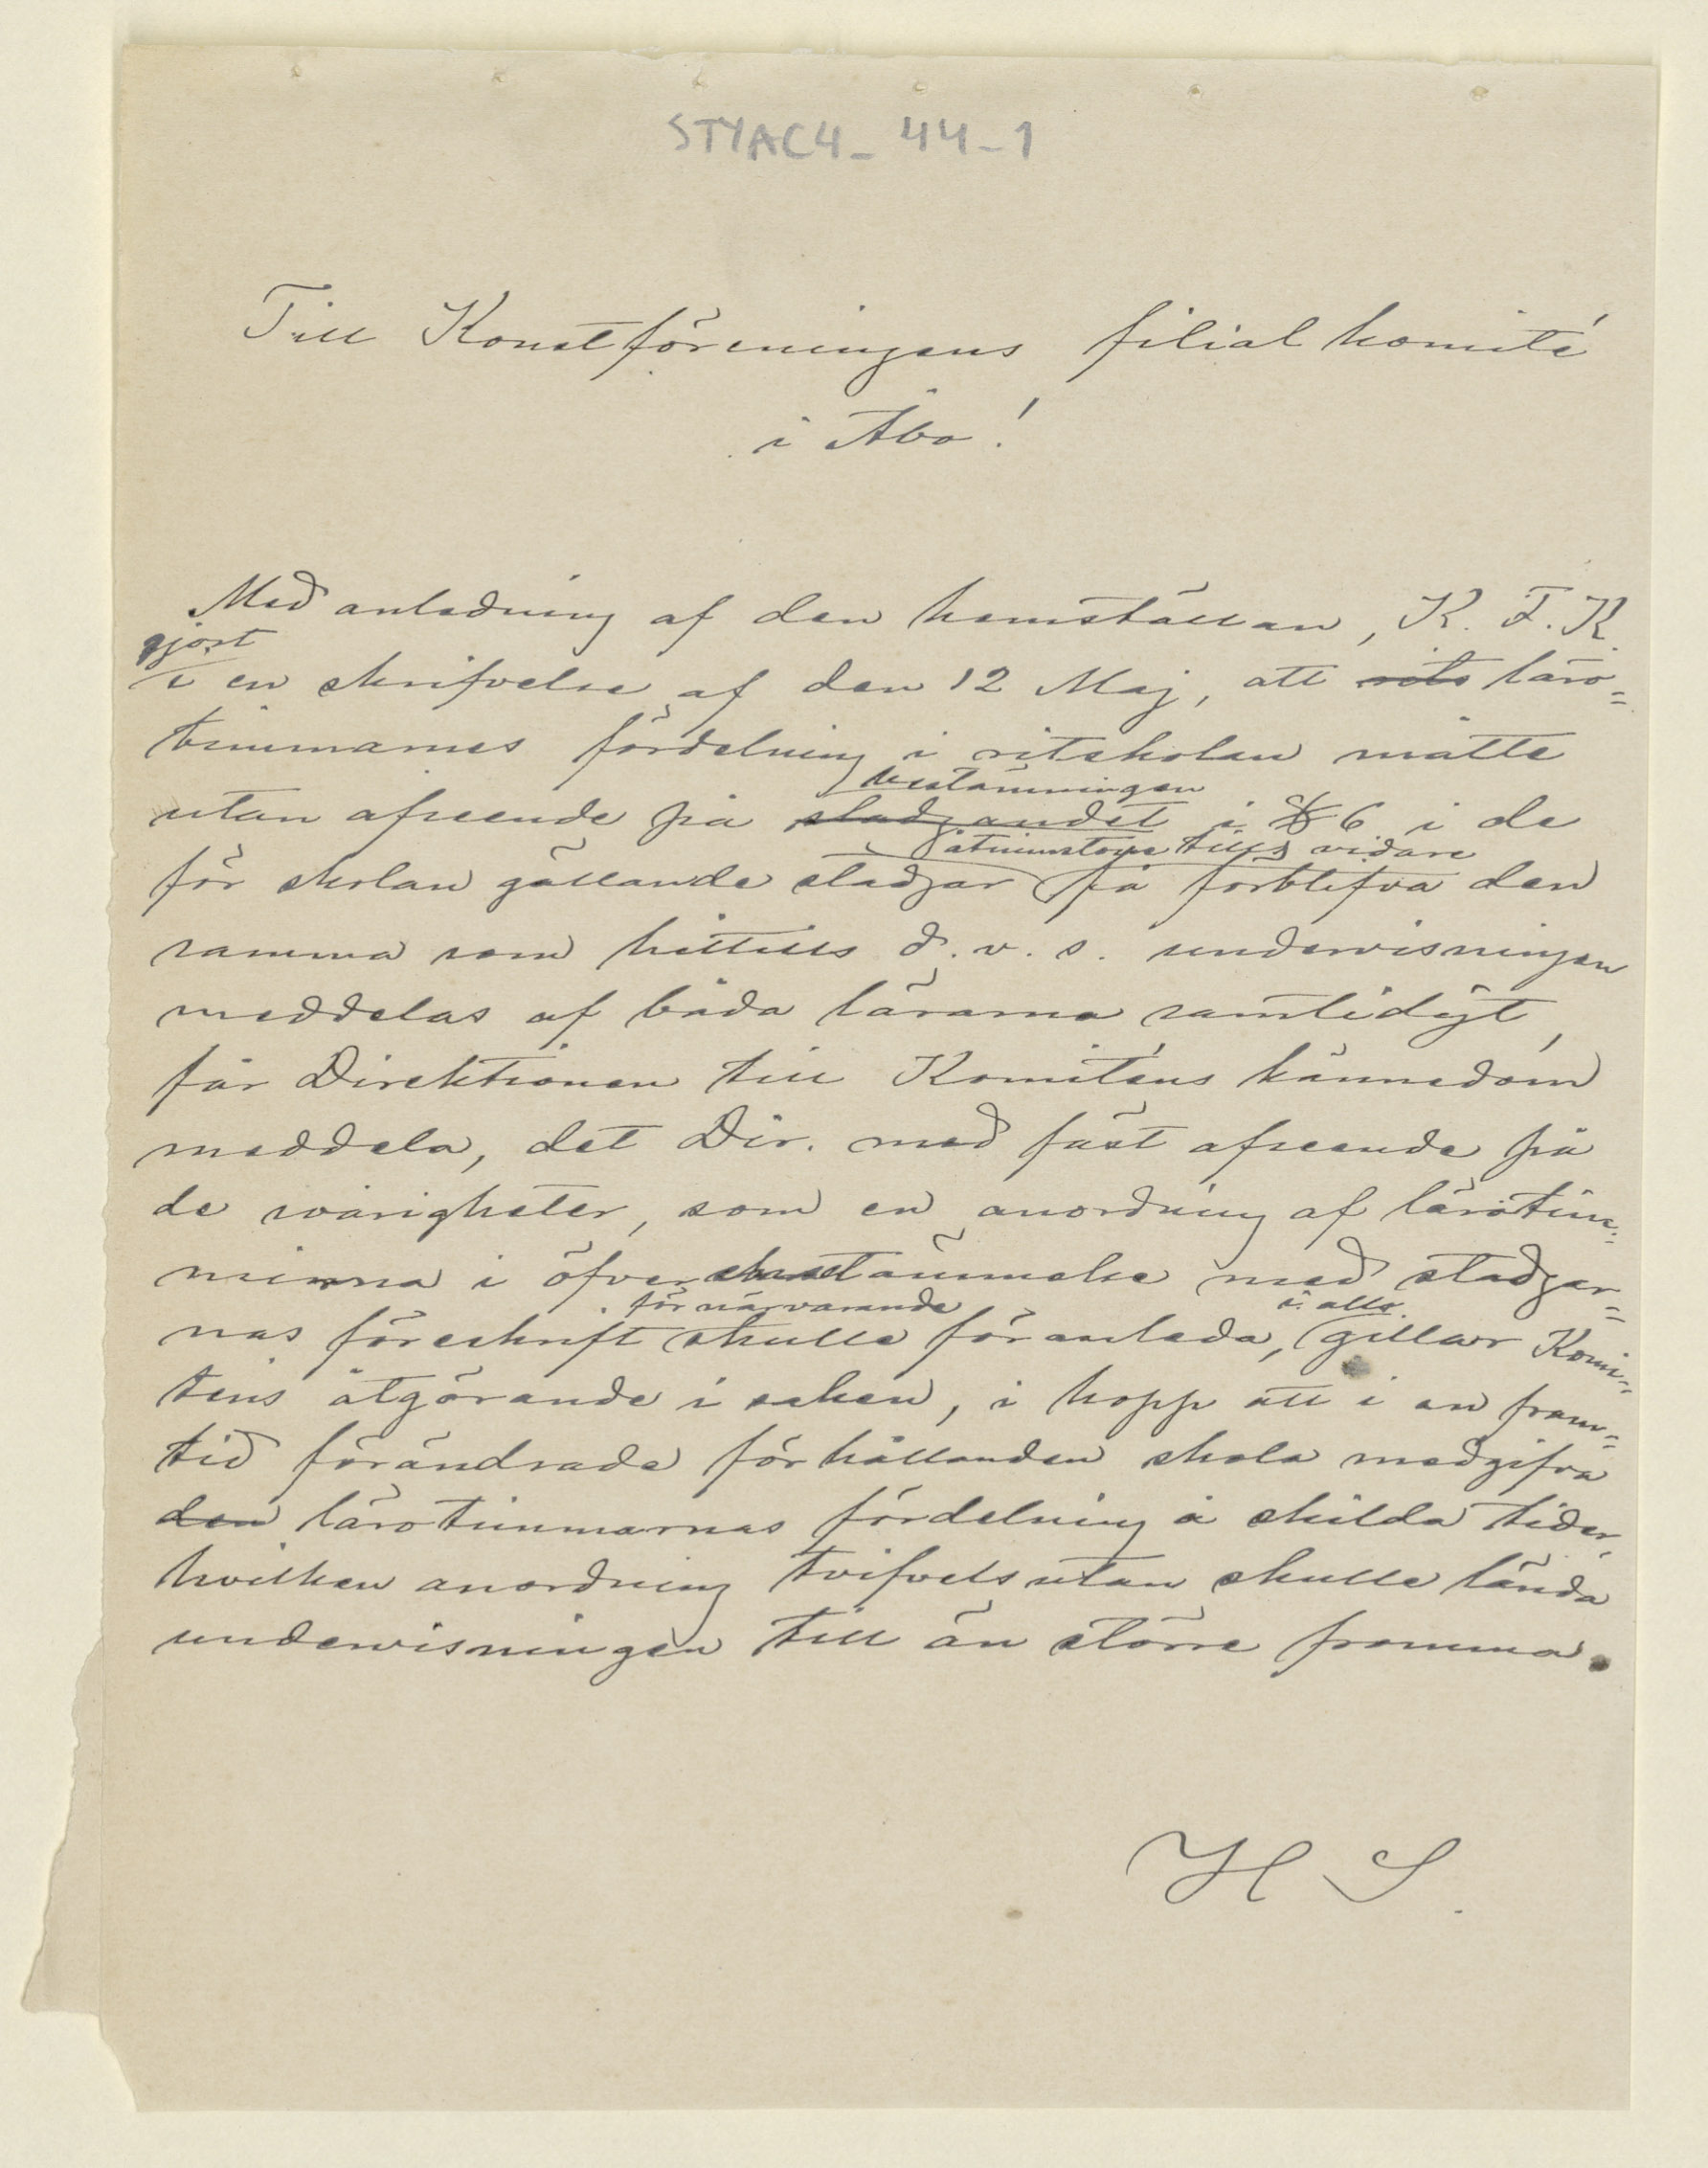 STYAC4_44_1
Till Konstföreningens filial komité
i Åbo!
Med anledning af den hemställan, K. F. K.
gjort
i en skrifvelse af den 12 Maj, att rits läro=
timmarnes fördelning i ritskolan måtte
bestämningen
utan afseende på stadgandet i § 6 i de
åtminstone tills vidare
för skolan gällande stadgar få förblifva den
samma som hittills d. v. s. undervisningen
meddelas af båda lärarna samtidigt,
får Direktionen till Komiténs kännedom
meddela, det Dir. med fäst afseende på
de svårigheter, som en anordning af lärotim=
marna i öfverensstämmelse med stadgar=
för närvarande i allo
nas föreskrift skulle föranleda, gillar Komi=
téns åtgörande i saken, i hopp att i en fram=
tid förändrade förhållanden skola medgifva
den lärotimmarnas fördelning å skilda tider,
hvilken anordning tvifvelsutan skulle lända
undervisningen till än större fromma.
H S.